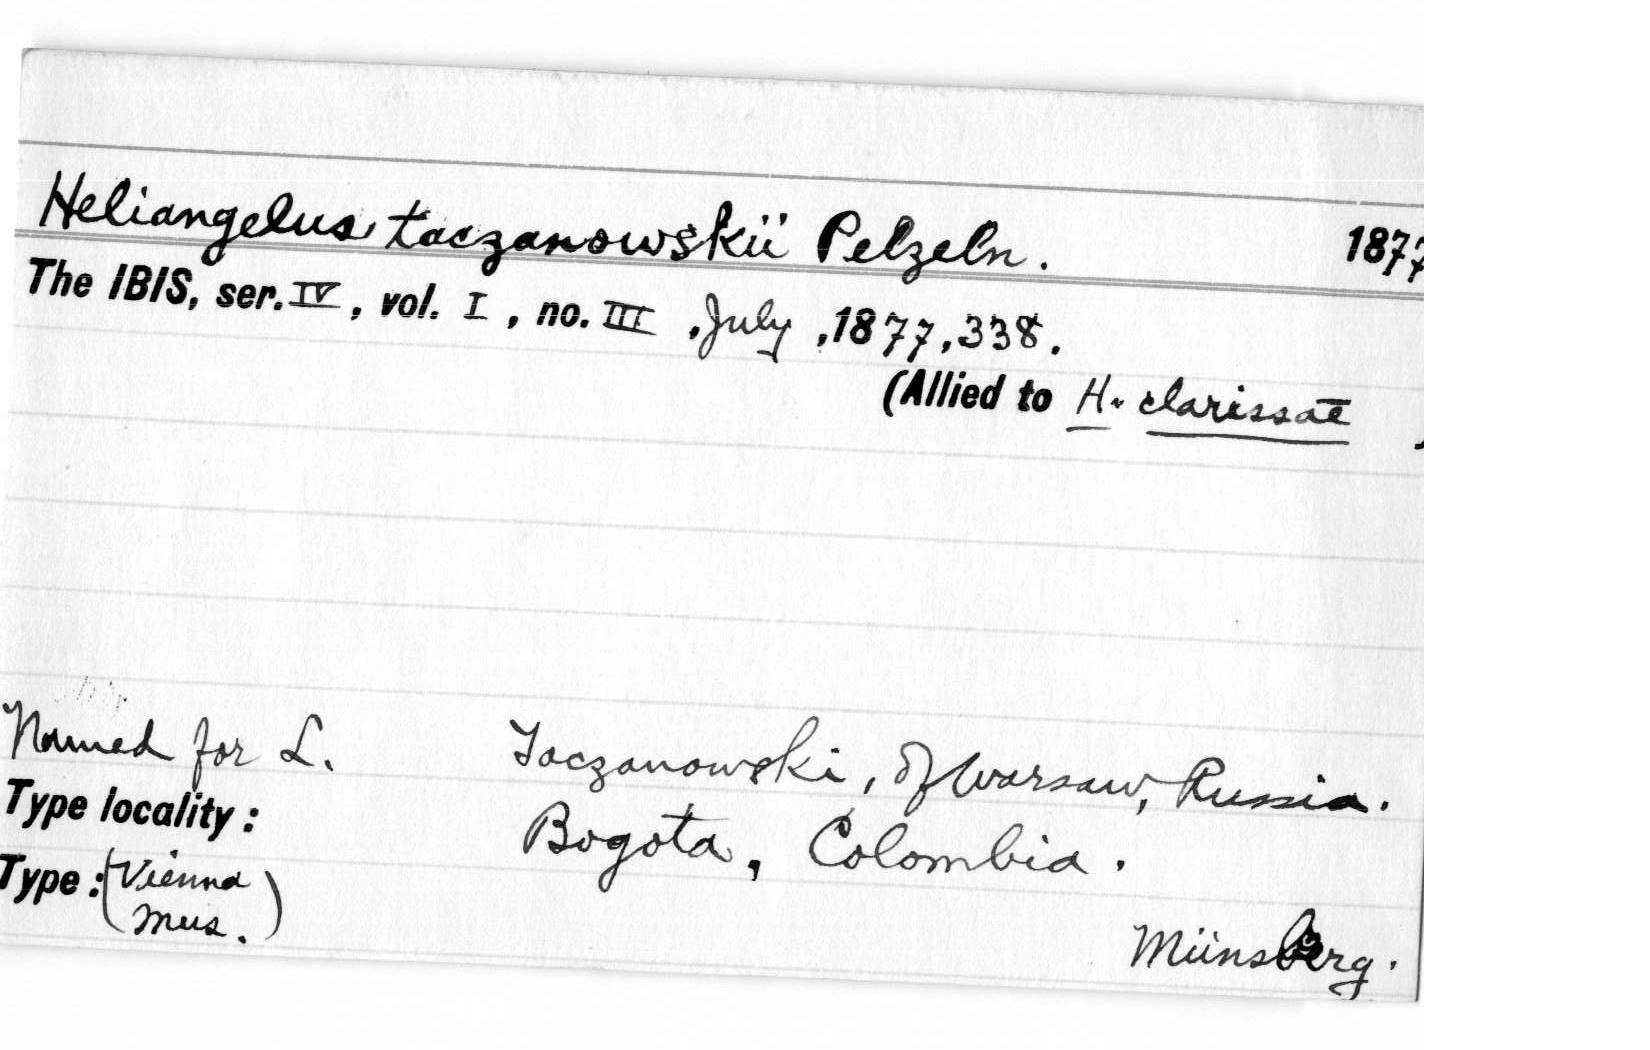 Heliangelus taczanowskii Pelzeln. 1877
The IBIS, ser. IV, vol. I, no. III, July, 1877, 338.
(Allied to H. clarissae )
Named for L. Taczanowski, of Warsaw, Russia.
Type locality: Bogota, Colombia.
Type: (Vienna
Mus.)
Münsberg.